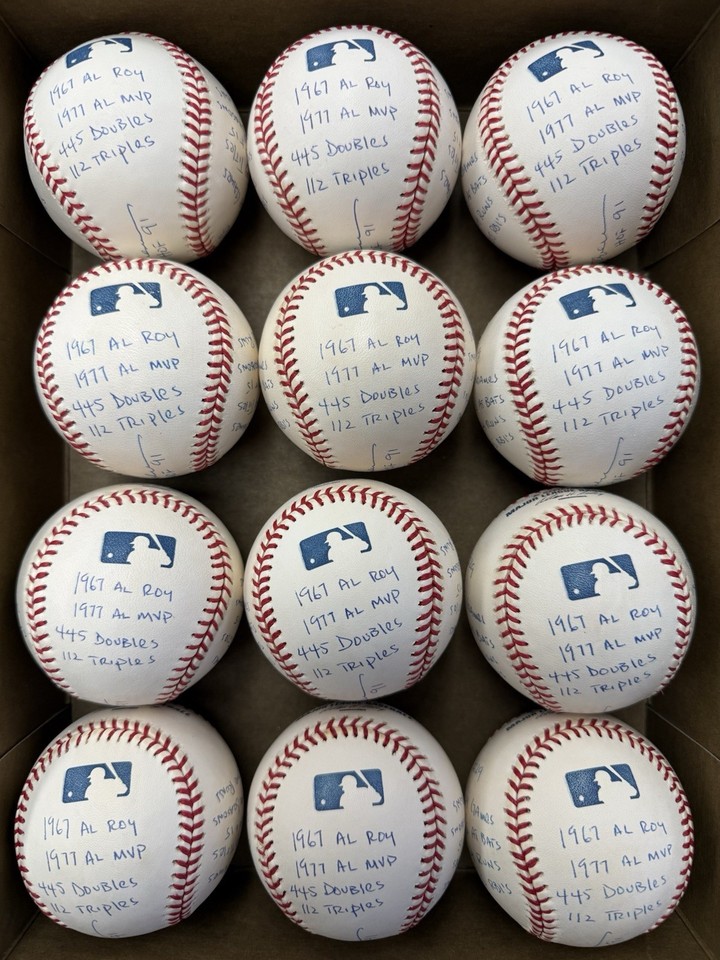 1967 AL ROY
1977 AL MVP
445 Doubles
112 Triples
1967 AL ROY
1977 AL MVP
445 Doubles
112 Triples
1967 AL ROY
1977 AL MVP
445 Doubles
112 Triples
HOF 91
1967 AL ROY
1977 AL MVP
445 Doubles
112 Triples
1967 AL ROY
1977 AL MVP
445 Doubles
112 Triples
1967 AL ROY
1977 AL MVP
445 Doubles
112 Triples
1967 AL ROY
1977 AL MVP
445 Doubles
112 Triples
1967 AL ROY
1977 AL MVP
445 Doubles
112 Triples
1967 AL ROY
1977 AL MVP
445 Doubles
112 Triples
1967 AL ROY
1977 AL MVP
445 Doubles
112 Triples
1967 AL ROY
1977 AL MVP
445 Doubles
112 Triples
1967 AL ROY
1977 AL MVP
445 Doubles
112 Triples